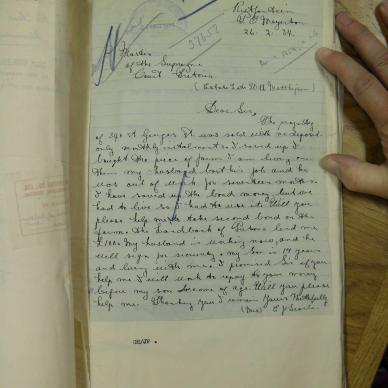 Rietfontein
P.O. Meyerton
26.2.34.
37657
Master
of the Supreme
Court Pretoria
(Estate Late D H Matthysen)
Dear Sir,
The property
of 390 St Georges St was sold with no deposit
only monthly instalments. I saved up &
bought the piece of farm I am living on.
Then my husband lost his job and he
was out of work for seventeen months.
I have saved up the bond money but we
had to live so I had to use it. Will you
please help me to take second bond on the
farm. The Landbank of Pretoria lend me
£100. My husband is working now, and he
will sign for security. My son is 14 years
and living with me. I promised Sir if you
help me I will work to repay to your money
before my son become of age. Will you please
help me. Thanking You I remain Yours Faithfully
(Mrs) E J